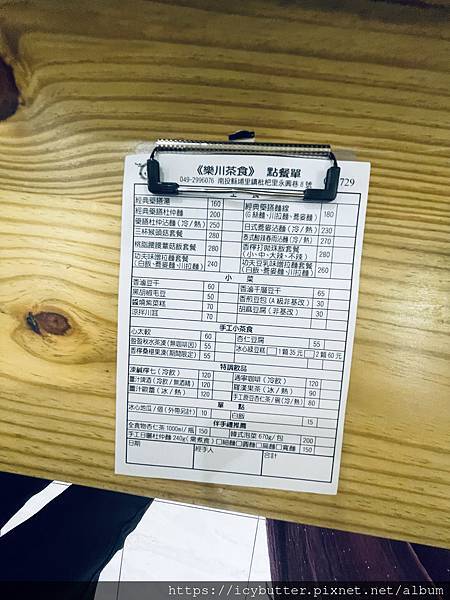 《樂川茶食》 點餐單
049-2996076 南投縣埔里鎮枇杷里永興巷8號
729
主食
經典藥膳湯 160 經典藥膳麵線 180
經典藥膳杜仲麵 200
藥膳杜仲沾麵(冷/熱) 250 日式蕎麥沾麵(冷/熱) 230
三杯猴頭菇套餐 280 泰式酸辣春雨沾麵(冷/熱) 270
280 香檸打拋珠飯套餐 260
(小、中、大辣、不辣)
功夫味噌拉麵套餐 240 功夫豆乳味噌拉麵套餐 260
(白飯、蕎麥麵、川拉麵) (白飯、蕎麥麵、川拉麵)
小菜
香滷豆干 60 香滷千層豆干 65
黑胡椒毛豆 50 香煎豆包(A級非基改) 30
醬燒紫菜糕 70 胡麻豆腐(非基改) 30
涼拌川耳 70
手工小茶食
心太軟 60 杏仁豆腐 55
55 冰心綠豆糕 □1顆35元 □2顆60元
香檸桑椹果凍(期間限定) 55
特調飲品
凍鹹檸七(冷飲) 120 邁寧咖啡(冷飲) 120
薑汁調酒(冷飲/無酒精) 120 羅漢果茶(冰/熱) 90
薑汁歐蕾(冰/熱) 120 手工原豆杏仁茶/碗(冷/熱) 80
單點
冰心地瓜/個(外帶另計) 10 白飯 15
伴手禮推薦
全食物杏仁茶 1000ml/瓶 150 韓式泡菜 670g/包 200
手工日曬杜仲麵 240g(需煮食) □細麵□圓麵□扁麵□寬麵 150
日期 經手人 合計
https://icybutter.pixnet.net/album